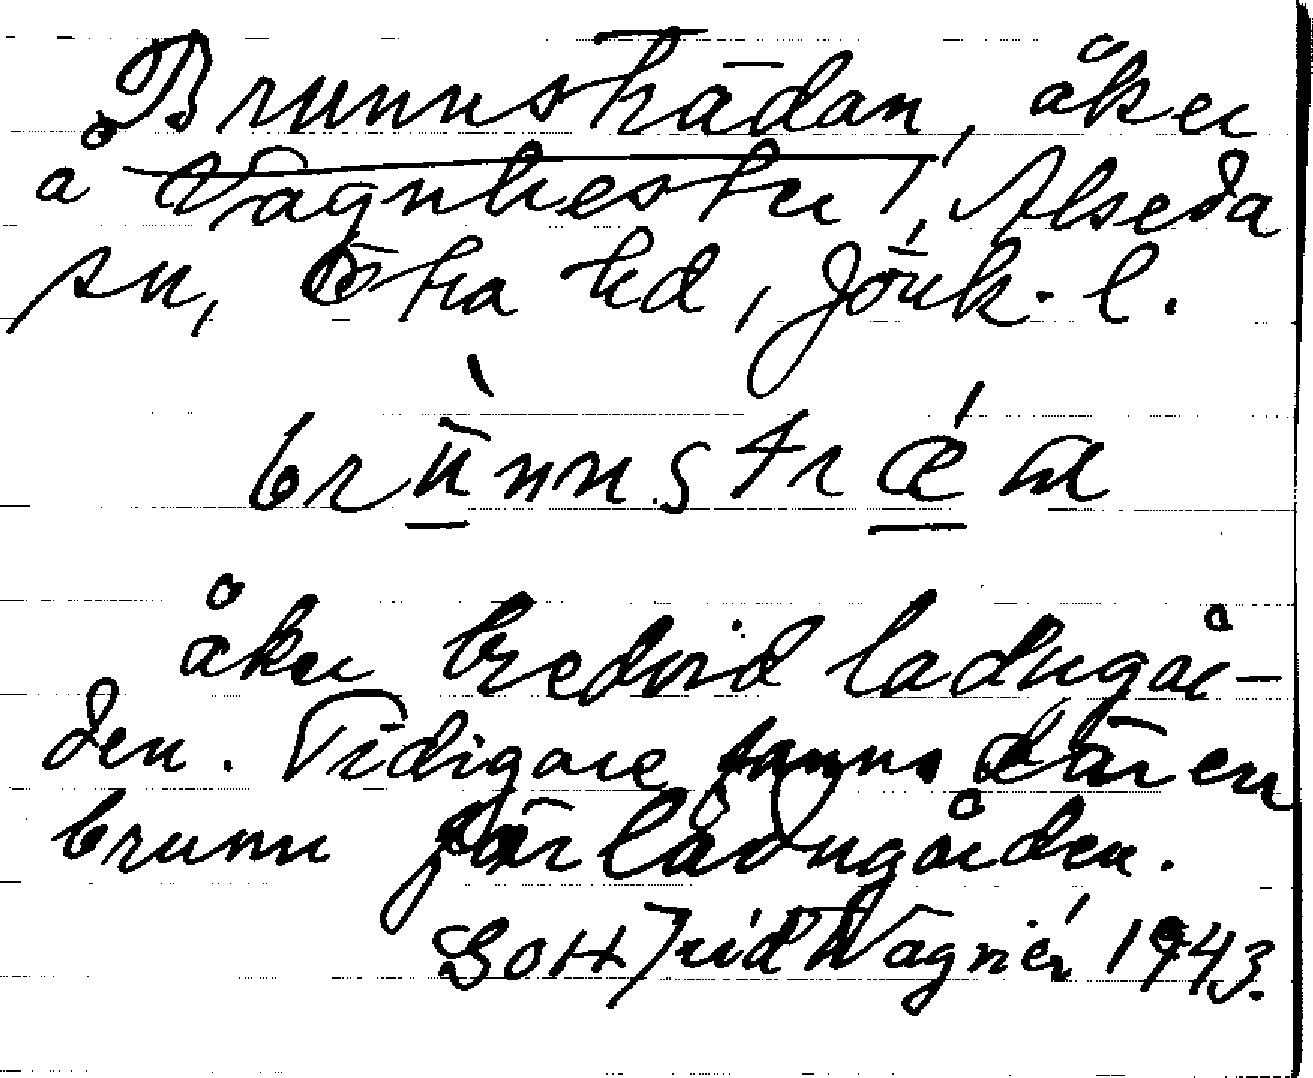 Brunnsträdan, åker
å Vägnhester, Alseda
sn, Östra hd, Jönk. l.
brùnnstrǽa
åker bredvid ladugår-
den. Tidigare fanns där en
brunn för ladugården.
Gottfrid Wägnér 1943.